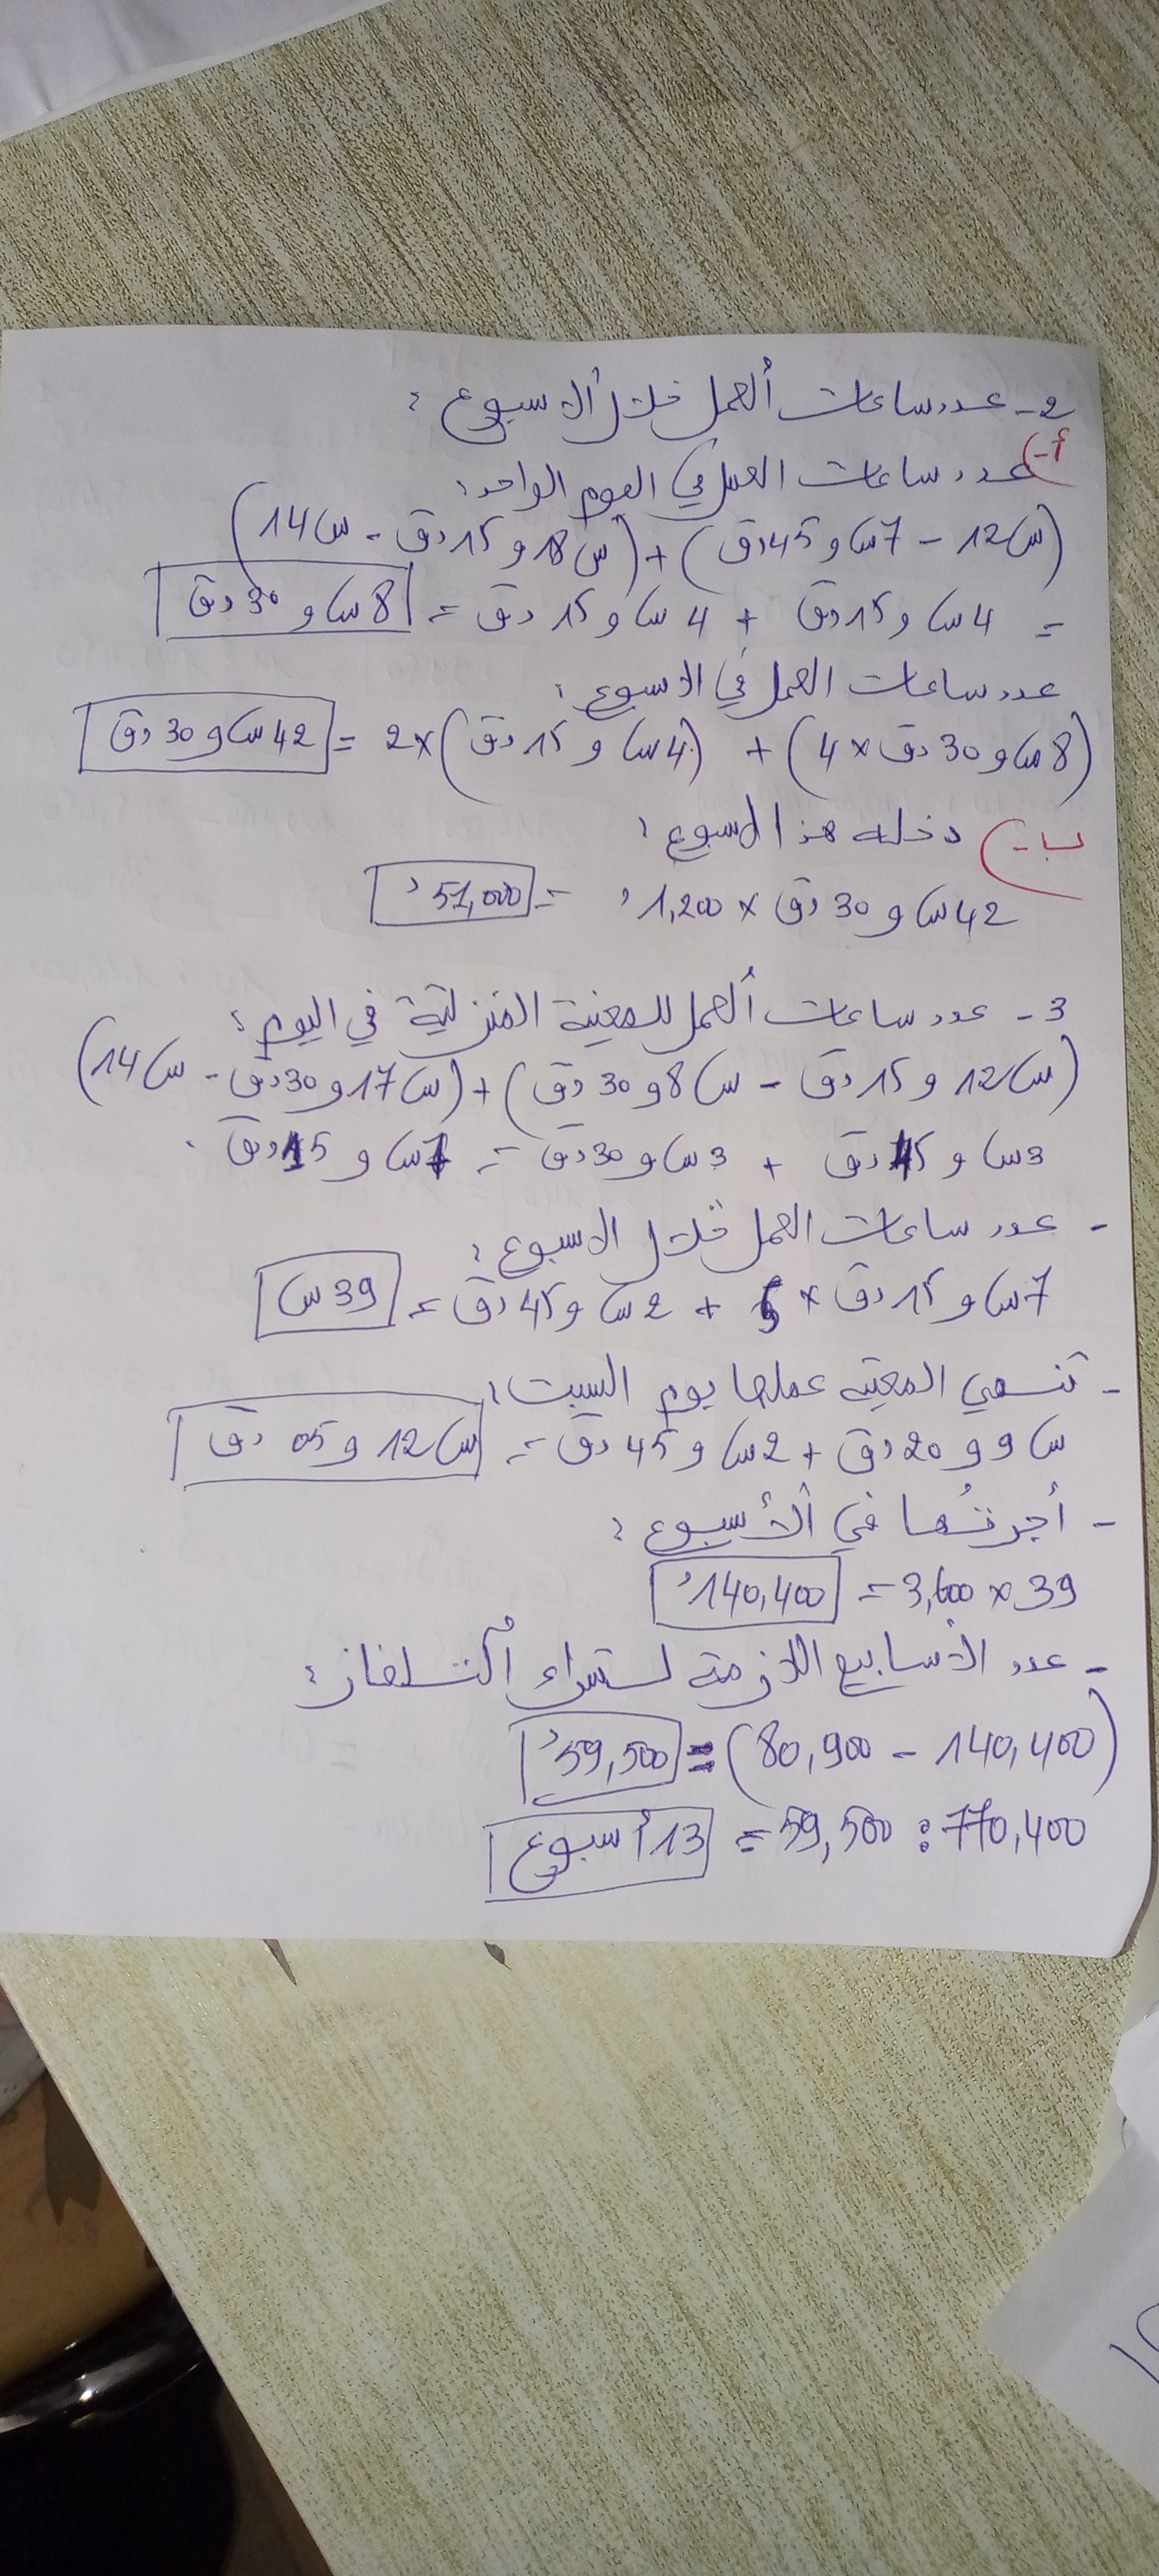 2- عدد ساعات العمل خلال الاسبوع :
أ- عدد ساعات العمل في اليوم الواحد :
(12س - 7س و 45دق) + (18س و 15دق - 14س)
= 4س و 15دق + 4س و 15دق = 8س و 30دق
عدد ساعات العمل في الاسبوع :
(8س و 30دق × 4) + (4س و 15دق) × 2 = 42س و 30دق
ب- دخله هذا الاسبوع :
42س و 30دق × 1,200د = 51,000د
3- عدد ساعات العمل للمعينة المنزلية في اليوم :
(12س و 15دق - 8س و 30دق) + (17س و 30دق - 14س)
3س و 45دق + 3س و 30دق = 7س و 15دق .
- عدد ساعات العمل خلال الاسبوع :
7س و 15دق × 5 + 2س و 45دق = 39س
- تنهي المعينة عملها يوم السبت :
9س و 20دق + 2س و 45دق = 12س و 05دق
- أجرتها في الأسبوع :
39 × 3,600 = 140,400د
- عدد الأسابيع اللازمة لشراء التلفاز :
(140,400 - 80,900) = 59,500د
770,400 : 59,500 = 13 أسبوع